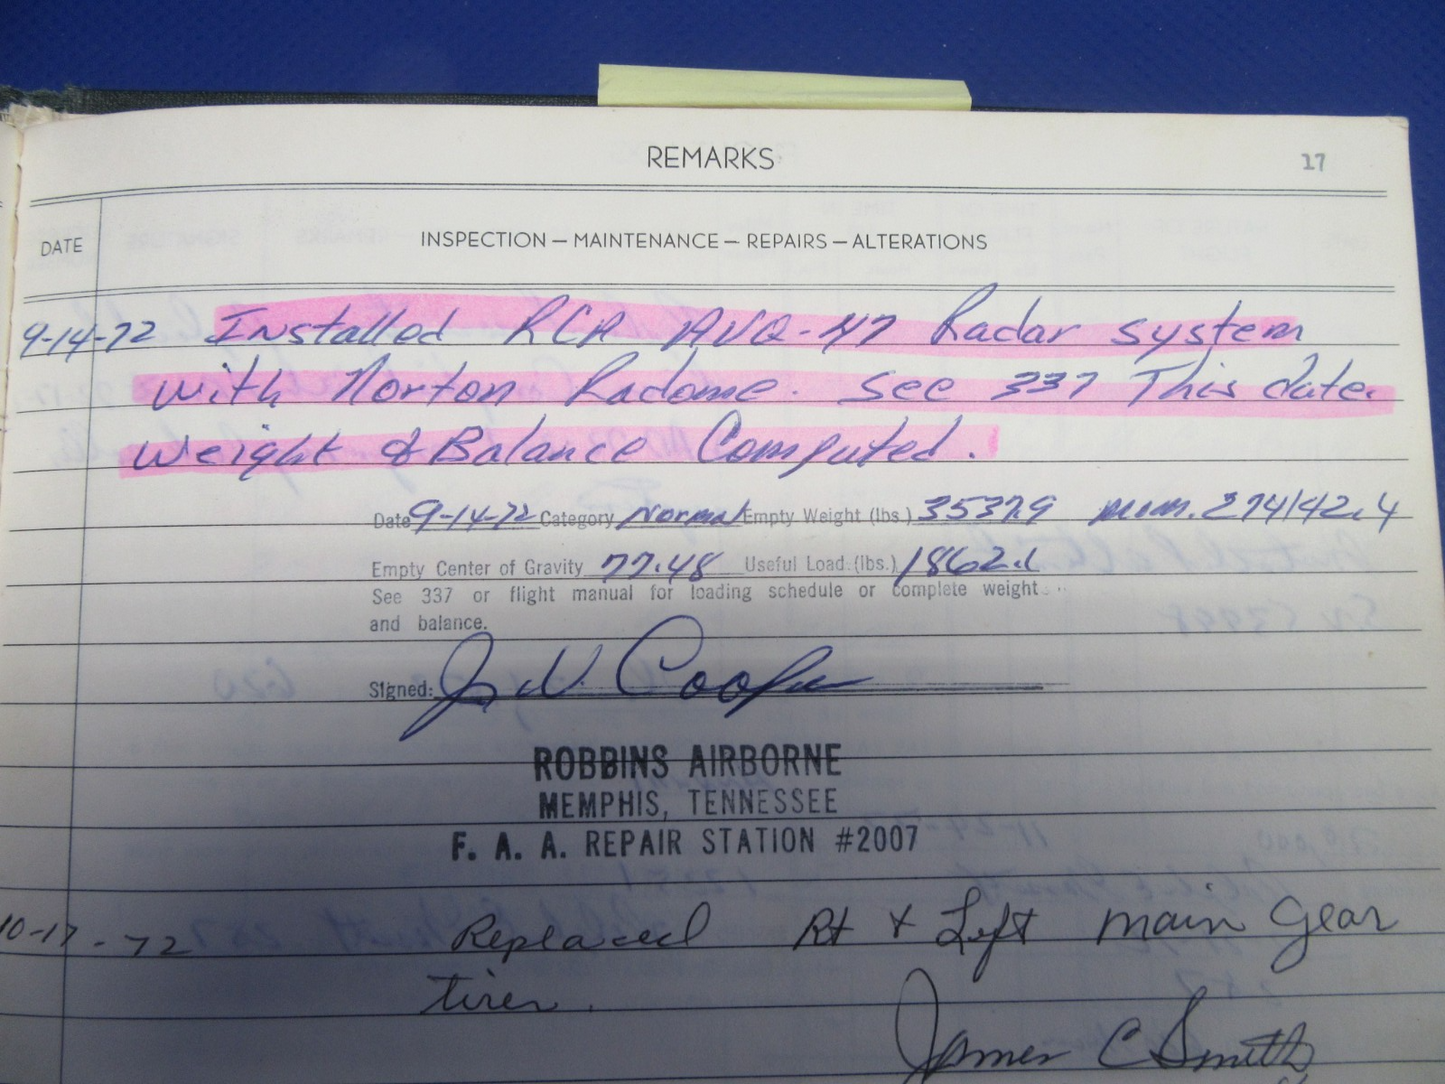 REMARKS 17
DATE INSPECTION — MAINTENANCE — REPAIRS — ALTERATIONS
9-14-72 Installed RCA AVQ-47 Radar system
with Norton Radome. See 337 This date.
Weight & Balance Computed.
Date 9-14-72 Category Normal Empty Weight (lbs.) 3537.9 mom. 274142.4
Empty Center of Gravity 77.48 Useful Load (lbs.) 1862.1
See 337 or flight manual for loading schedule or complete weight
and balance.
Signed: J. V. Cooper
ROBBINS AIRBORNE
MEMPHIS, TENNESSEE
F. A. A. REPAIR STATION #2007
10-17-72 Replaced Rt & Left main gear
tires.
James C Smith